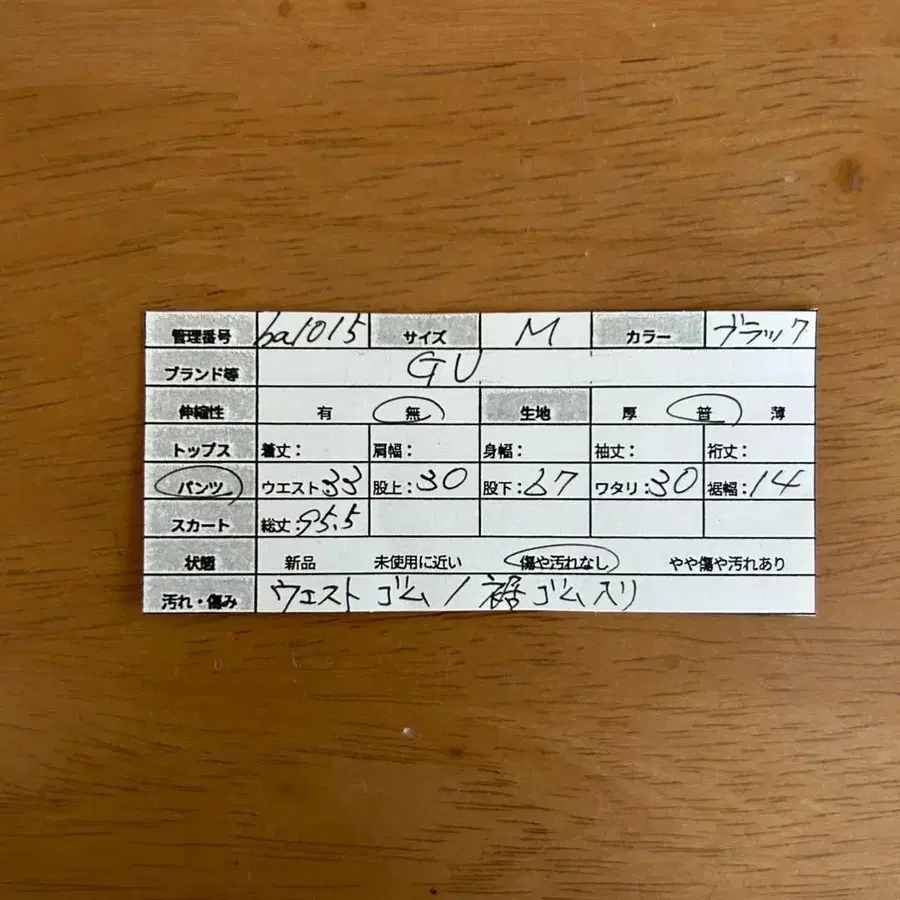 管理番号 ba1015 サイズ M カラー ブラック
ブランド等 GU
伸縮性 有 無 生地 厚 普 薄
トップス 着丈: 肩幅: 身幅: 袖丈: 裄丈:
パンツ ウエスト33 股上:30 股下:67 ワタリ:30 裾幅:14
スカート 総丈:95.5
状態 新品 未使用に近い 傷や汚れなし やや傷や汚れあり
汚れ・傷み ウエスト ゴム / 裾ゴム入り